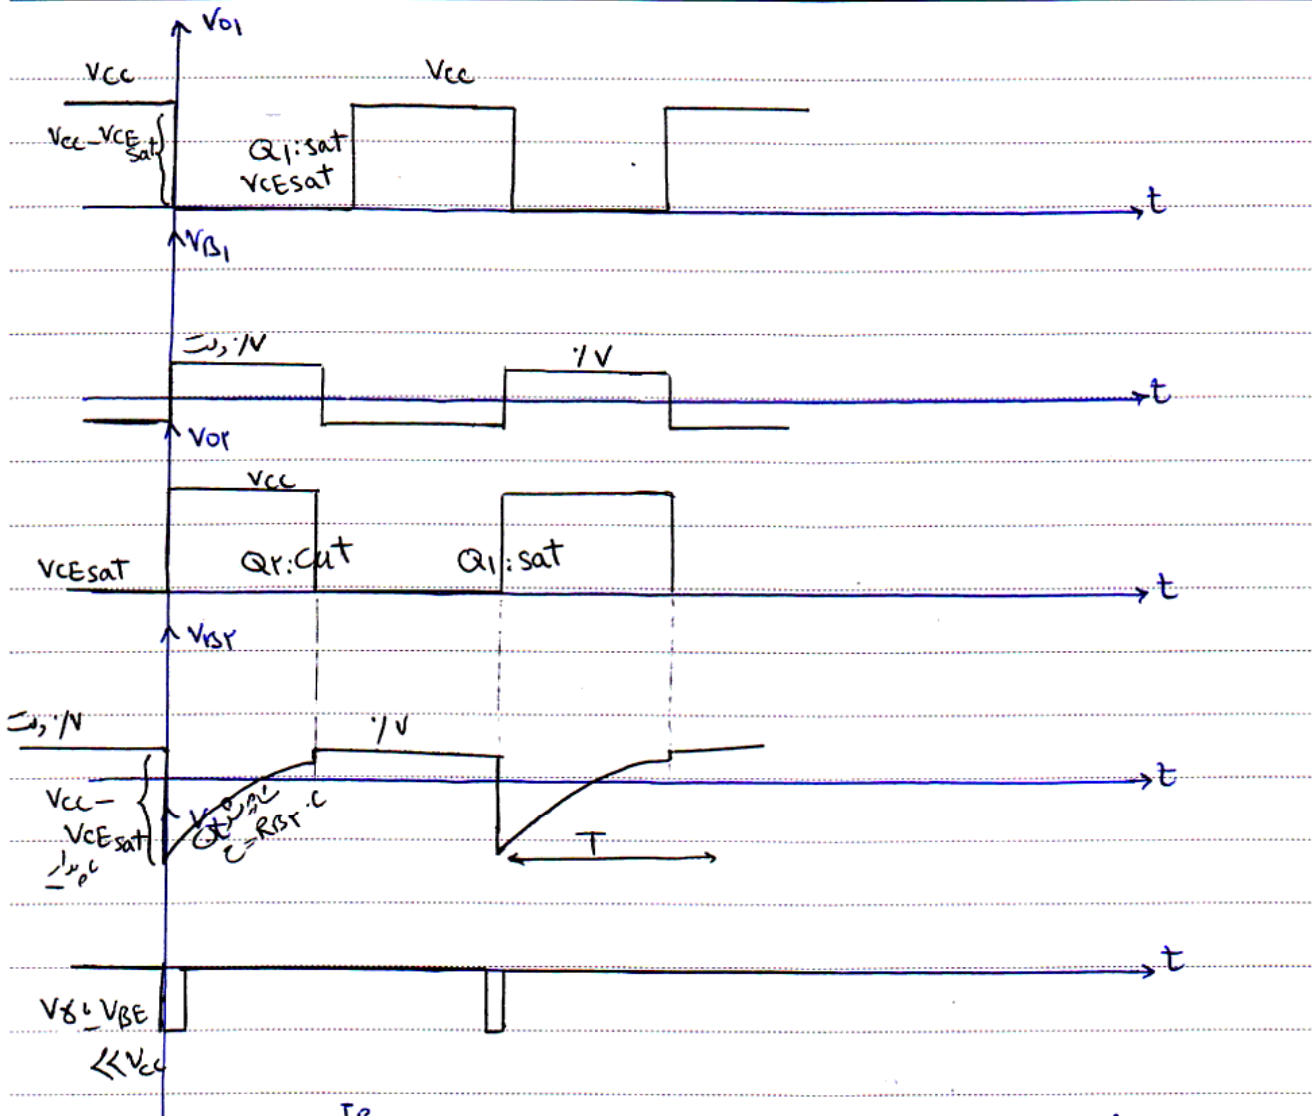 Vo1
Vcc
Vcc
Vcc-VCEsat
Q1:sat
VCEsat
t
VB1
ولت ۰/۷
۰/۷
t
Vo۲
Vcc
VCEsat
Q۲:cut
Q1:sat
t
VB۲
ولت ۰/۷
۰/۷
t
Vcc-
VCEsat
τ=RB۲.C
T
t
Vγ
VBE
<<Vcc